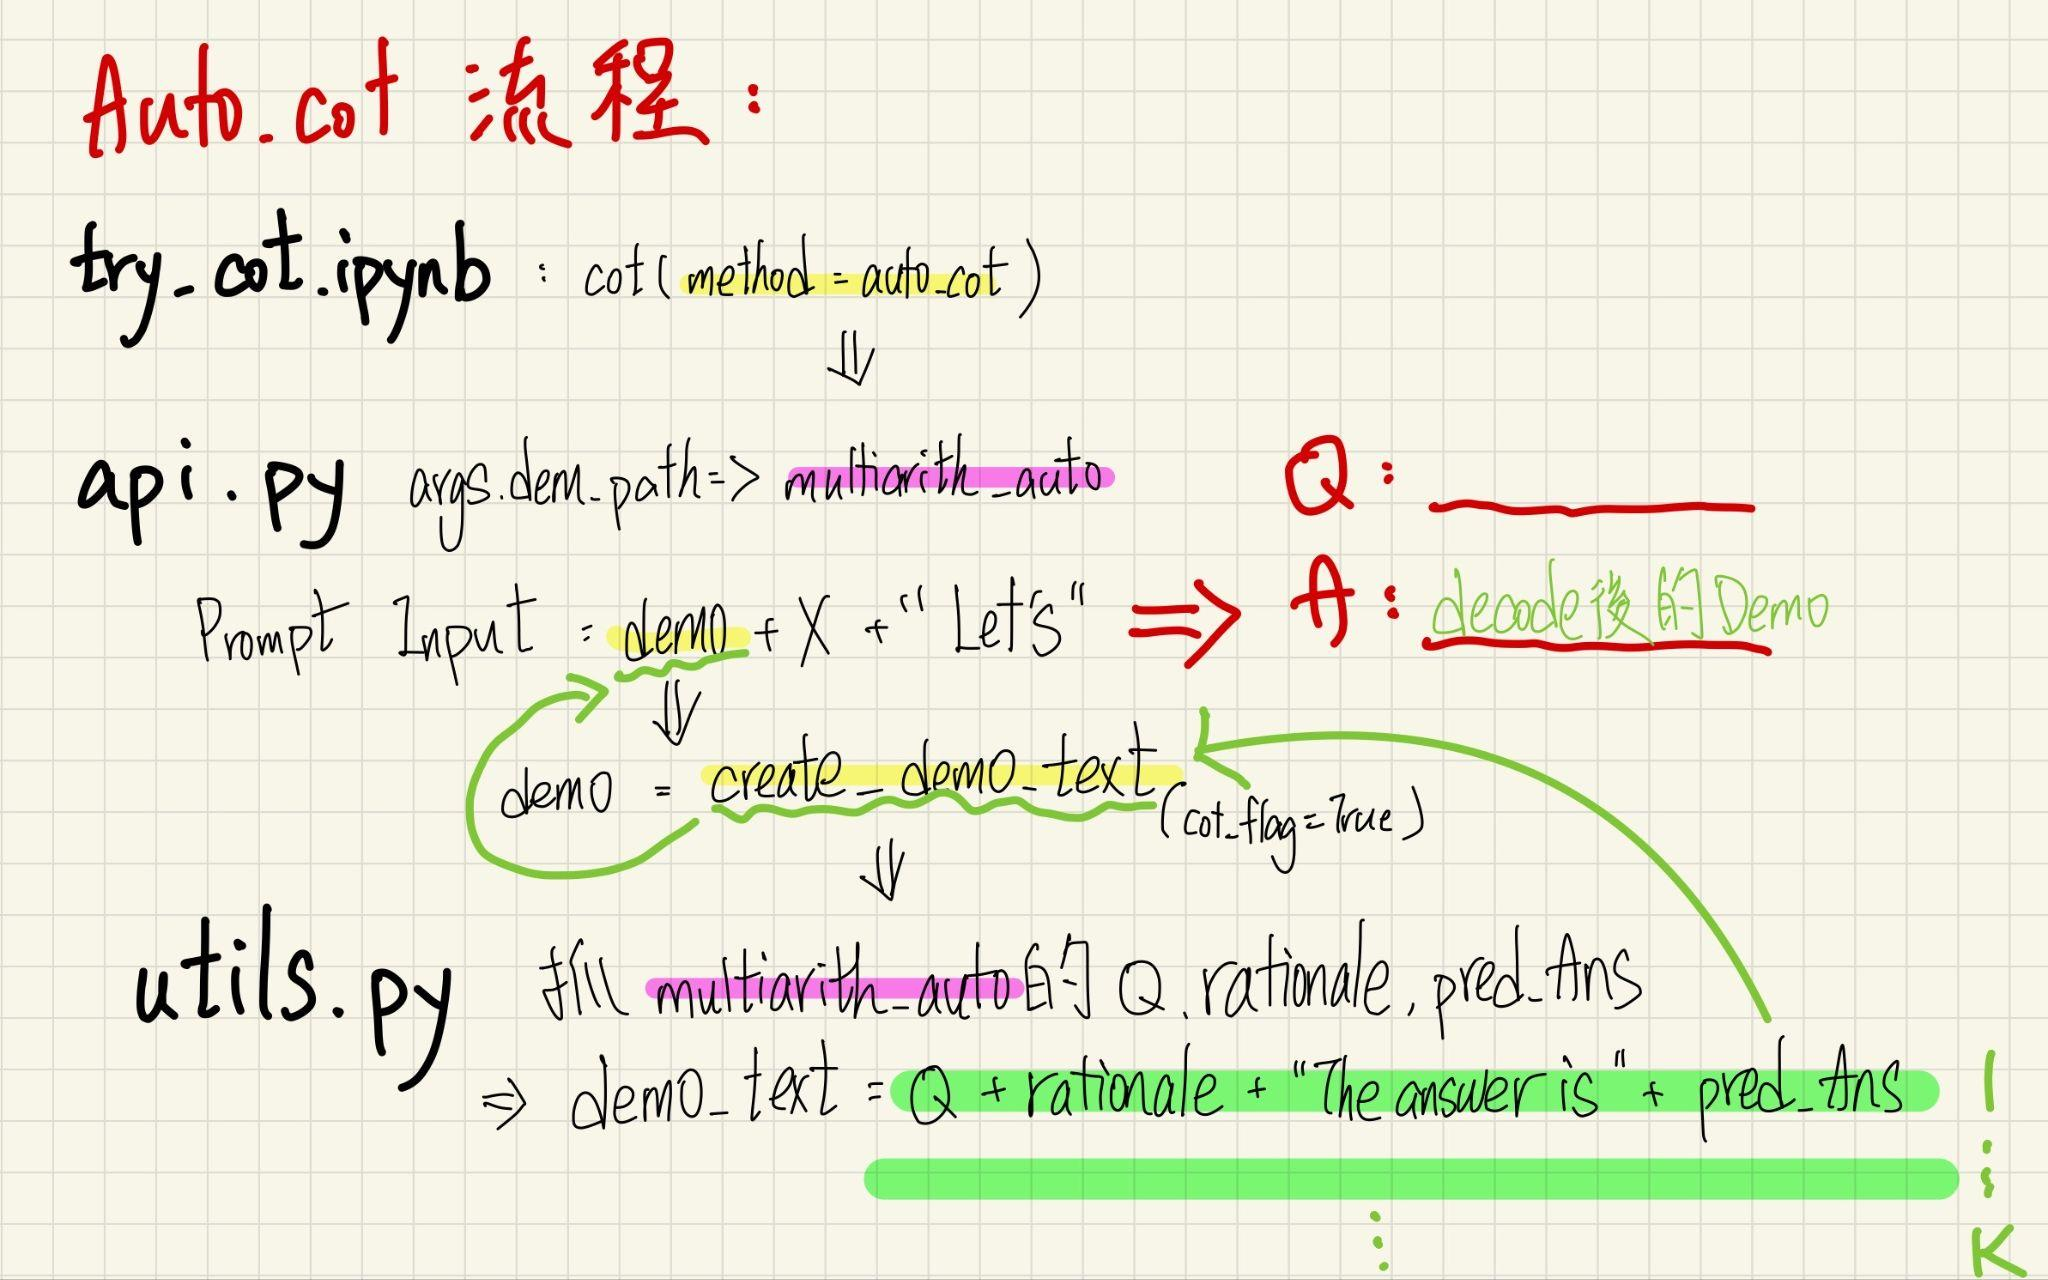 Auto_cot 流程：
try_cot.ipynb : cot(method = auto_cot)
⇓
api.py args.dem_path=> multiarith_auto
Q:
Prompt Input : demo + X + "Let's" ⇒ A: decode後的Demo
⇓
demo = create_demo_text (cot_flag=True)
⇓
utils.py multiarith_auto的 Q, rationale, pred_Ans
⇒ demo_text = Q + rationale + "The answer is" + pred_Ans 1
⋮
⋮ K